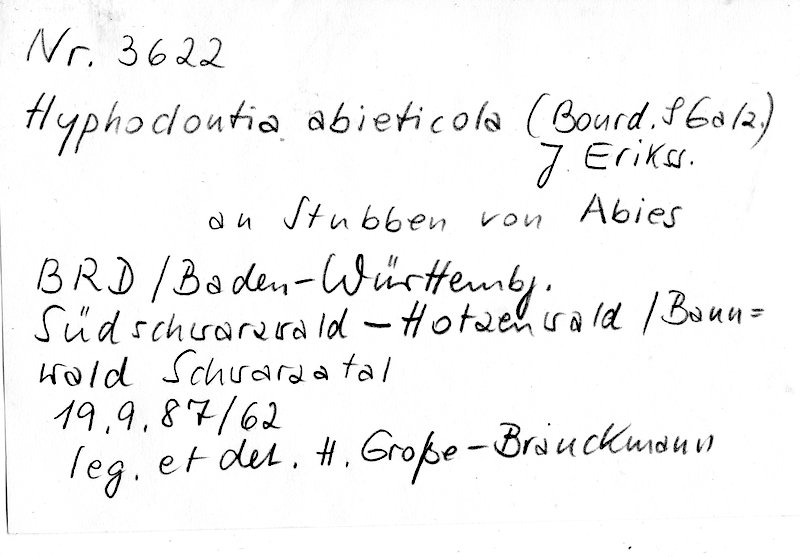 Nr. 3622
Hyphodontia abieticola (Bourd. & Galz.)
J. Erikss.
an Stubben von Abies
BRD / Baden-Württembg.
Südschwarzwald - Hotzenwald / Bann=
wald Schwarzatal
19.9.87/62
leg. et det. H. Große-Brauckmann